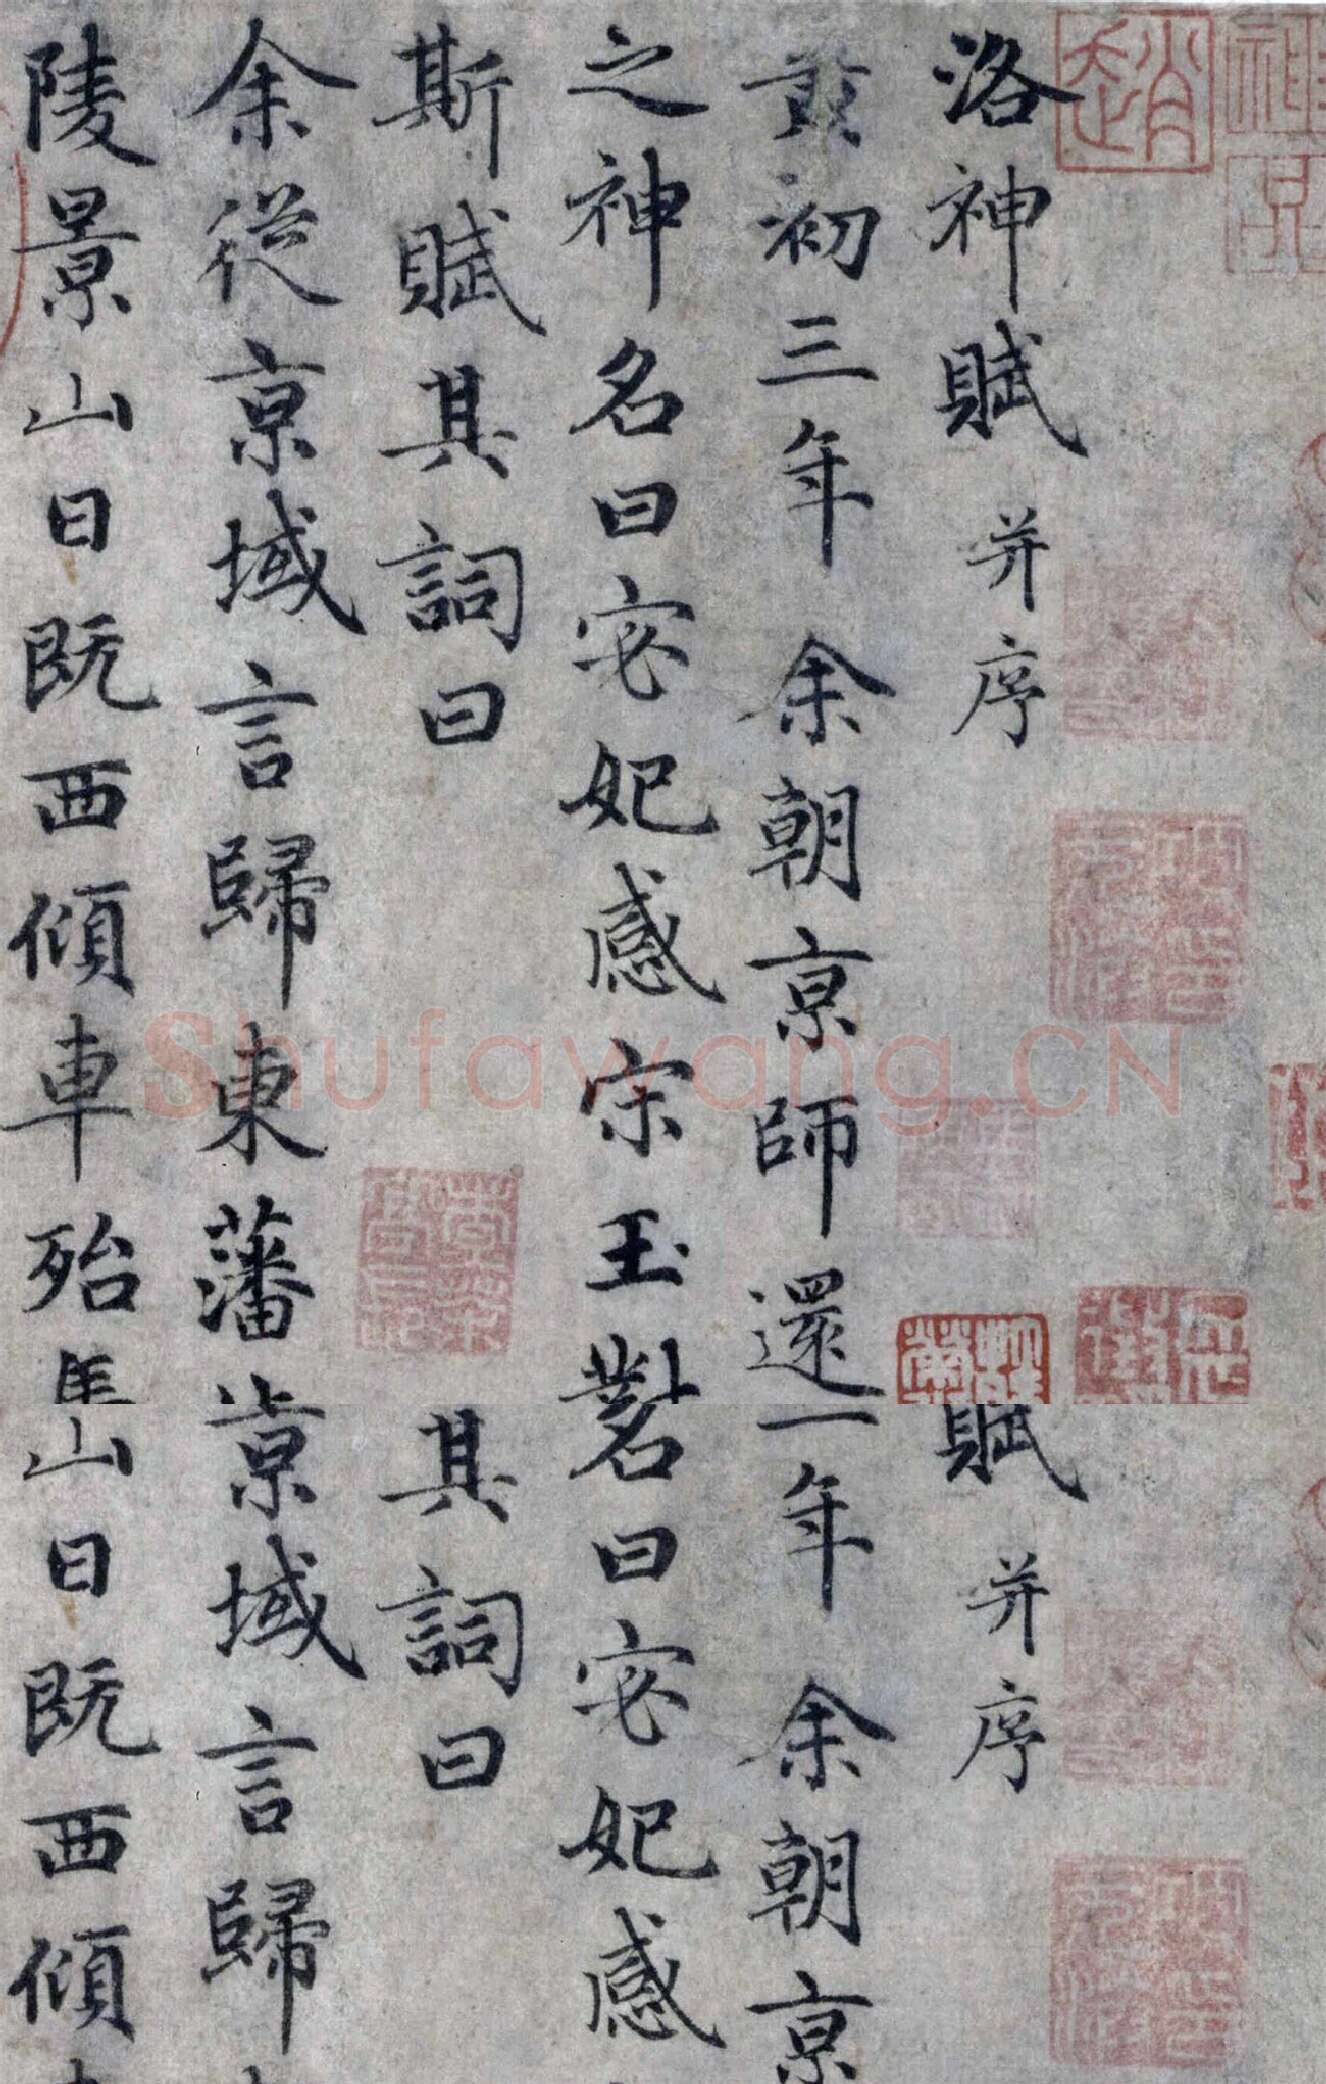 洛神賦 并序
黃初三年余朝京師還
之神名曰宓妃感宋玉對
斯賦其詞曰
余從京域言歸東藩
陵景山日既西傾車殆馬
賦 并序
年余朝京
名曰宓妃感
其詞曰
京域言歸
山日既西傾
趙
Shufawang.CN